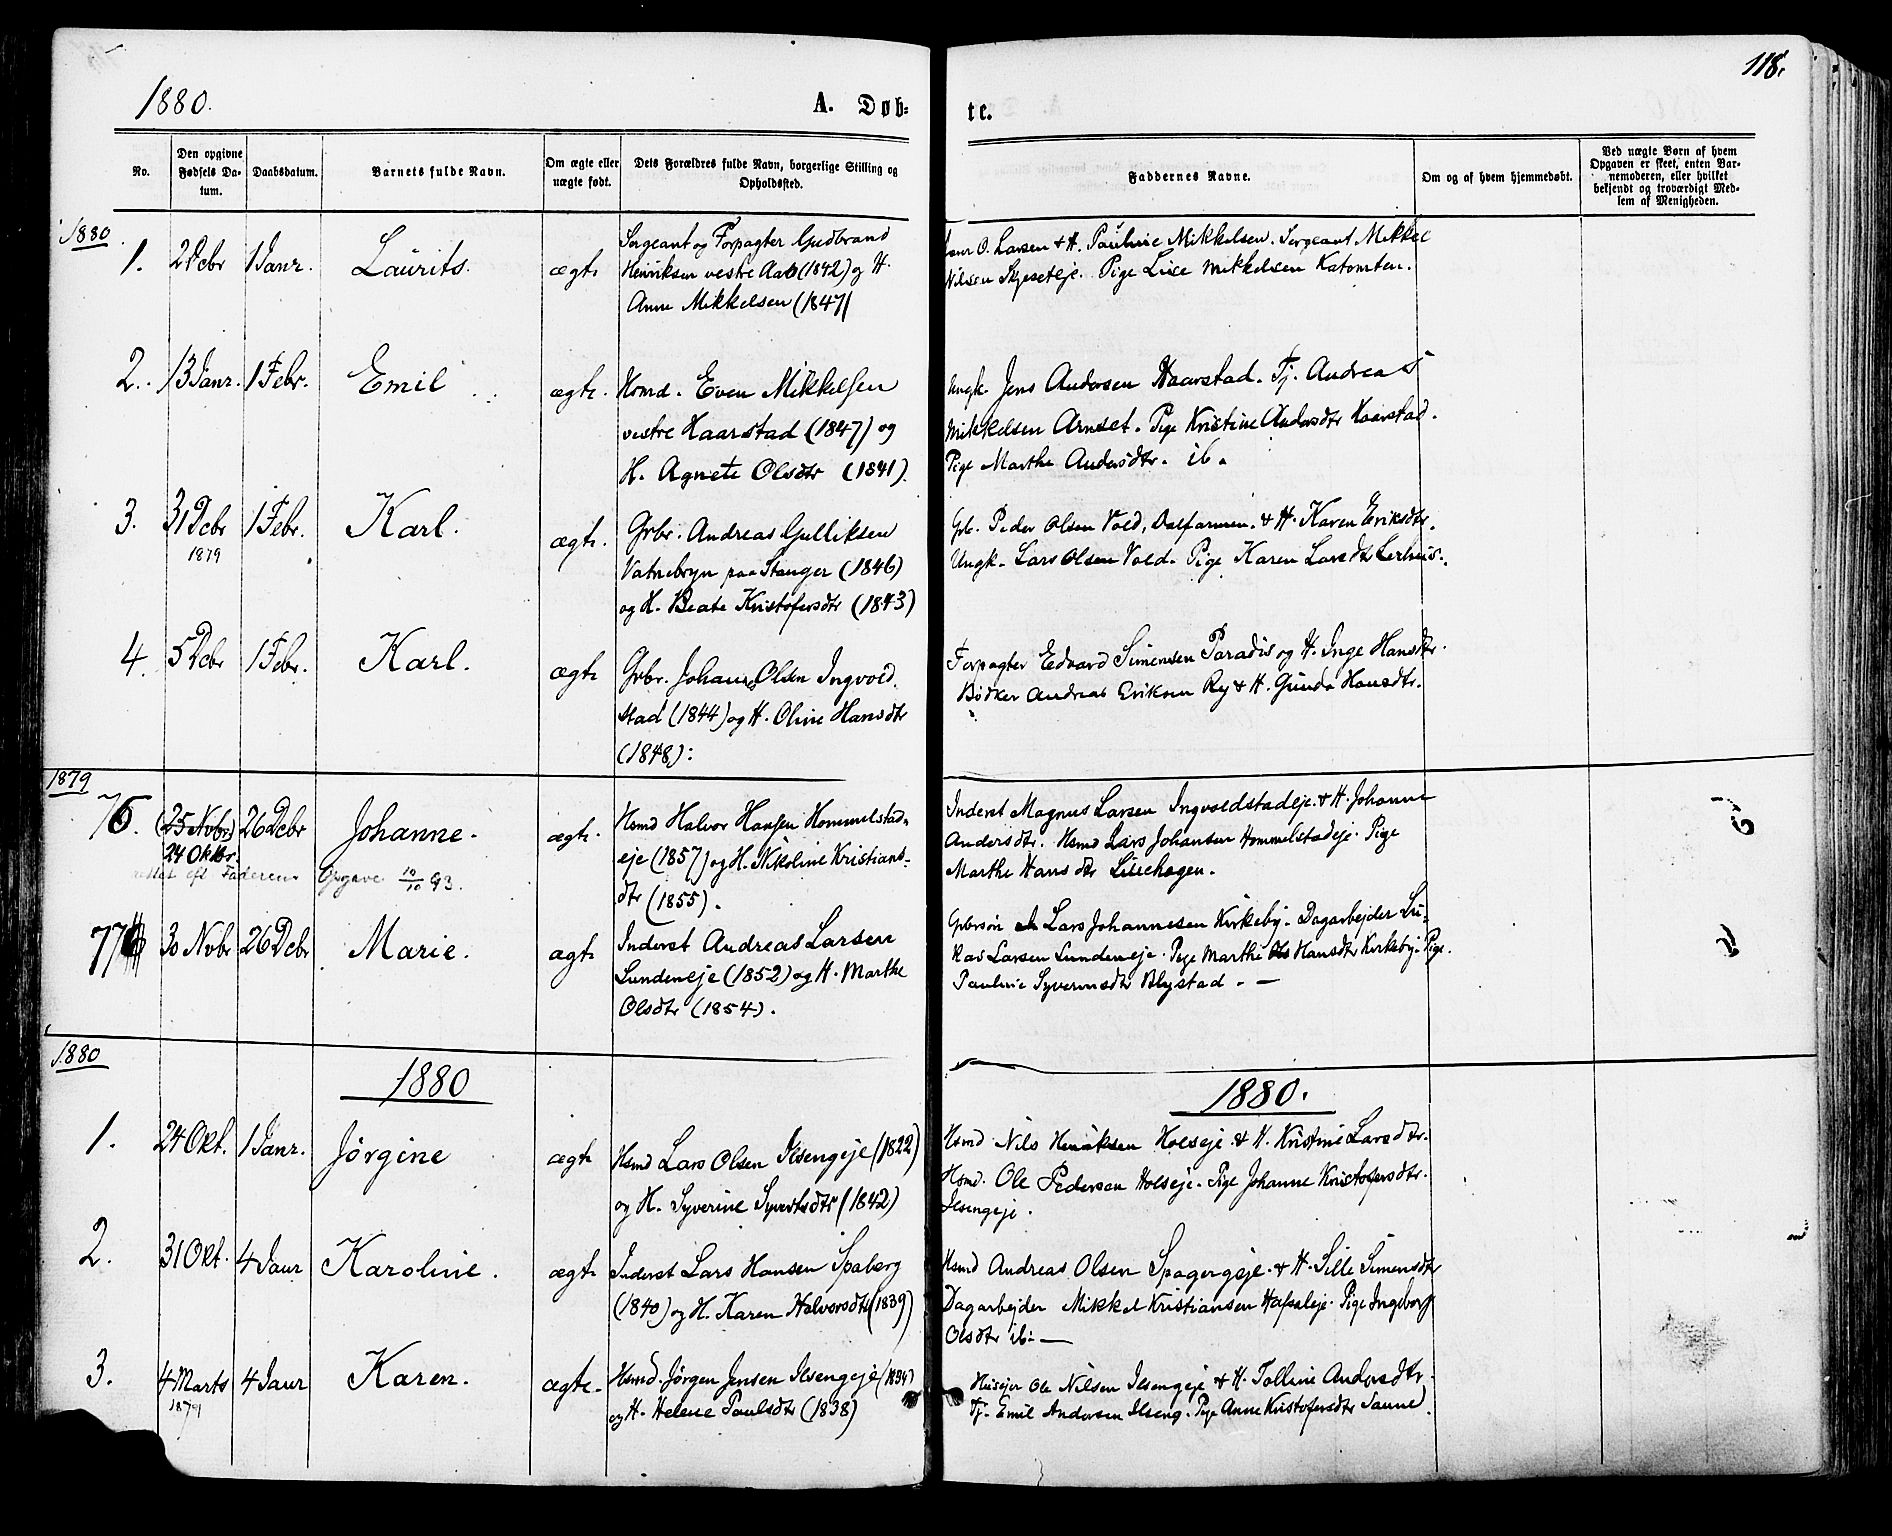 118.
1880.
A. Døb-
te.
No.
Den opgivne Fødsels Da-tum.
Daabsdatum.
Barnets fulde Navn.
Om ægte eller nægte født.
Dets Forældres fulde Navn, borgerlige Stilling og Opholdssted.
Faddernes Navne.
Om og af hvem hjemmedøbt.
Ved nægte Børn af hvem Opgaven er skeet, enten Bar-nemoderen, eller hvilket bekjendt og troværdigt Med-lem af Menigheden.
1880
1. 2 Dcbr 1 Janr. Laurits. ægte
Sergeant og Forpagter Gudbrand
Henriksen vestre Aab (1842) og H.
Anne Mikkelsen (1847)
O. Larsen & H. Pauline Mikkelsen. Sergeant Mikkel
Nilsen Skjeseteje. Pige Lise Mikkelsen Katomten.
2. 13 Janr. 1 Febr. Emil ægte.
Hsmd. Even Mikkelsen
vestre Haarstad (1847) og
H. Agnete Olsdtr (1841).
Ungk. Jens Andersen Haarstad. Tj. Andreas
Mikkelsen Arnset. Pige Kristine Andersdtr Haarstad.
Pige Marthe Andersdtr. ib.
3. 31 Dcbr 1879 1 Febr. Karl. ægte.
Grbr. Andreas Gulliksen
Vatnebryn paa Stanger (1846)
og H. Beate Kristofersdtr (1843)
Grb. Peder Olsen Vold, Dalfarmen. & H. Karen Eriksdtr.
Ungk. Lars Olsen Vold. Pige Karen Larsdtr
4. 5 Dcbr 1 Febr. Karl. ægte
Grbr. Johannes Olsen Ingvold-
stad (1844) og H. Oline Hansdtr
(1848).
Forpagter Edvard Simensen Paradis og H. Inge Hansdtr.
Bødker Andreas Eriksen Ry & H. Gunda Hansdtr.
1879
76. (25 Novbr.) 26 Dcbr Johanne. ægte.
24 Oktbr.
rettet eft Faderens Opgave 10/10 93.
Hsmd Halvor Hansen Hommelstad-
eje (1857) og H. Nikoline Kristians-
dtr (1855).
Inderst Magnus Larsen Ingvoldstadeje. & H. Johanne
Andersdtr. Hsmd Lars Johansen Hommelstadeje. Pige
Marthe Hansdtr Liliehagen.
77 30 Nvbr 26 Dcbr Marie. ægte
Inderst Andreas Larsen
Lundeneje (1852) og H. Marthe
Olsdtr (1854).
Gbrsøn Lars Johannesen Kirkeby. Dagarbejder
Larsen Lundeneje. Pige Marthe Hansdtr Kirkeby. Pige
Pauline Syversdtr Blystad. —
1880
1880
1880.
1. 24 Okt. 1 Janr. Jørgine ægte
Hsmd Lars Olsen Ilsengeje (1822)
og H. Syverine Syvertsdtr (1842)
Hsmd. Nils Henriksen Holseje & H. Kristine Larsdtr.
Hsmd. Ole Pedersen Holseje. Pige Johanne Kristofersdtr.
Ilsengeje.
2. 31 Okt. 4 Janr Karoline. ægte
Inderst Lars Hansen Spaberg
(1840) og H. Karen Halvorsdtr (1839)
Hsmd Andreas Olsen & H. Sille Simensdtr
Dagarbejder Mikkel Kristiansen Hafsleje. Pige Ingeborg
Olsdtr ib. —
3. 4 Marts 1879 4 Janr Karen. ægte.
Hsmd. Jørgen Jensen Ilsengeje (1834)
og H. Helene Paulsdtr (1838)
Husejer Ole Nilsen Ilsengeje & H. Polline Andersdtr.
Tj. Emil Andersen Ilseng. Pige Anne Kristofersdtr Saune.